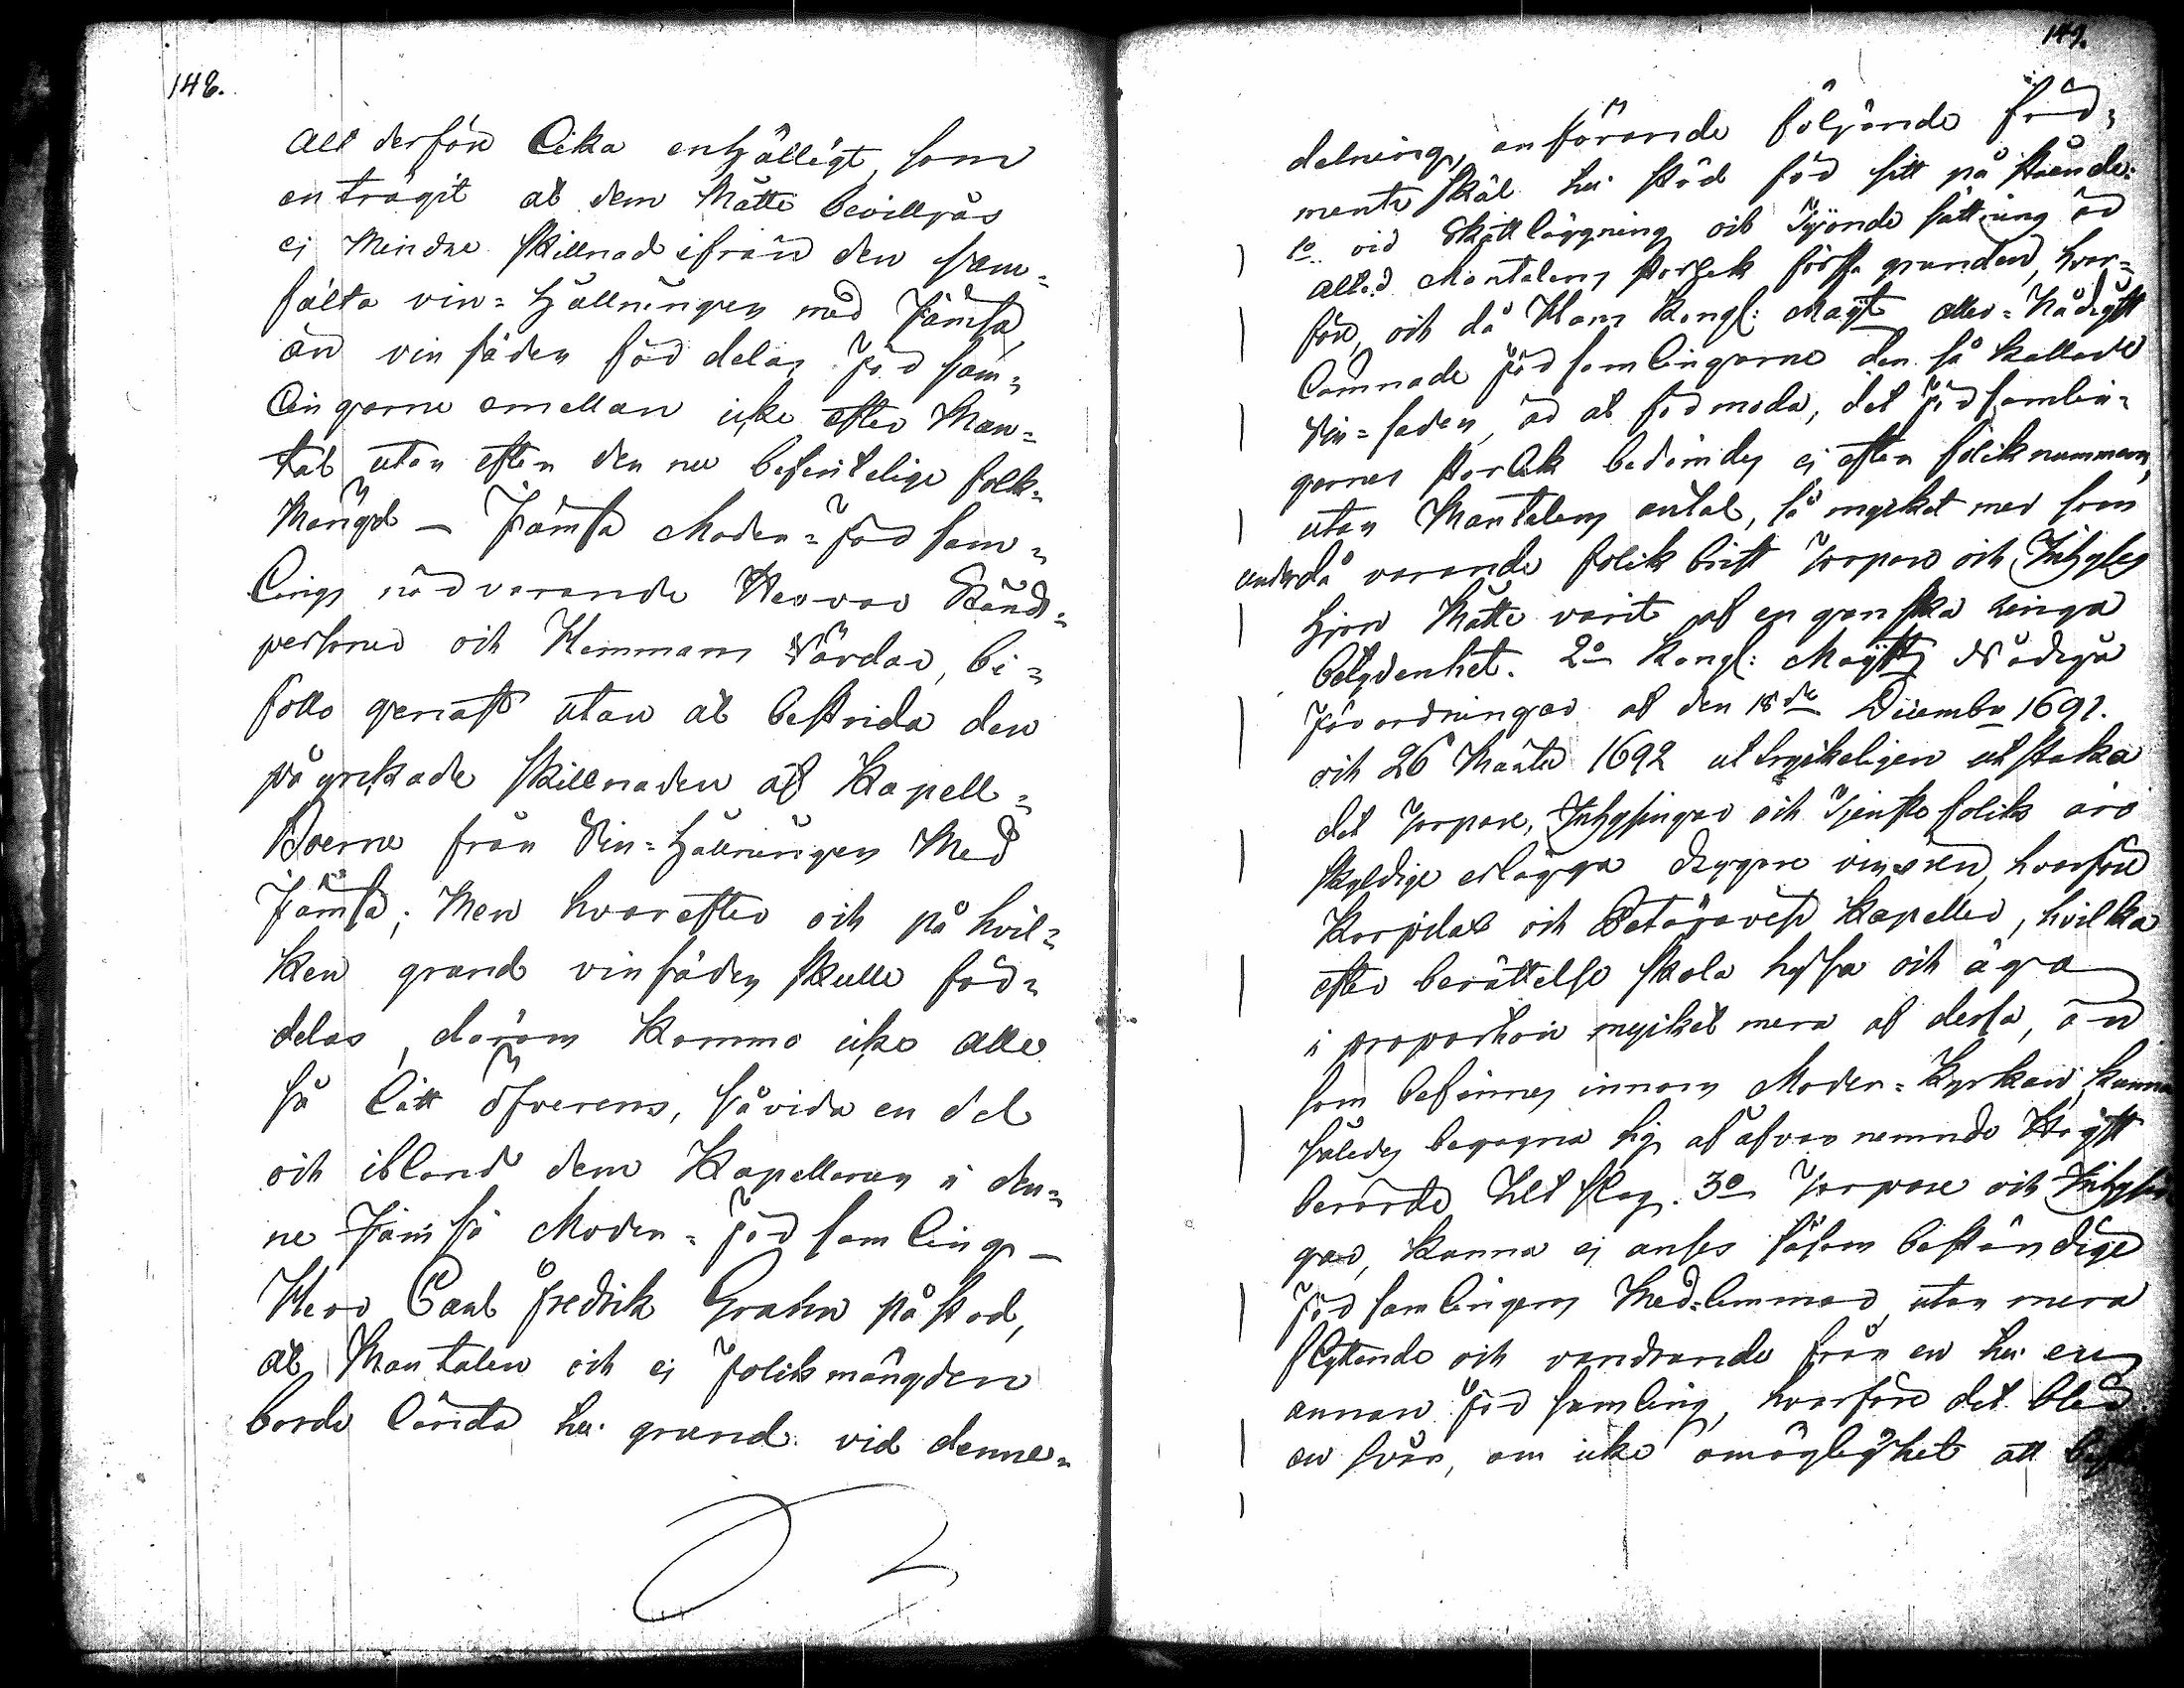 148.
All derföre lika enhälligt som
enträgit at dem måtte beviljas
ej mindre skillnad ifrån den sam=
fälta vin=hållningen med Jämsä,
än vin säden fördelas För sam=
lingarne emellan icke efter Man=
tal utan efter den nu befintelige folk=
mängd — Jämsä Moder=För sam=
lings närvarande Herrar Stånds=
personer och Hemmans Värdar, bi=
föllo genast utan at bestrida den
påyrkade skillnaden af Kapell=
Boerne från Vin=hållningen med
Jämsä; Men hvarefter och på hvil=
ken grund vinsäden skulle för=
delas, därom kommo icke alle
så lätt öfverens, såvida en del
och ibland dem Kapellanen i den=
ne Jämsä Moder=För samling —
Herr Carl Fredrik Grahn påstod,
at Mantalen och ej Folkmängden
borde lända til grund vid denne=
149.
delning, anförande följande för=
mente skäl til stöd för sitt påstående:
1o vid Skattläggning och Tijonde sättning är
altid Mantalens storlek första grunden, hvar=
före, och då Hans Kongl: Mayt aller=Nådigst
lämnade Församlingarne den så kallade
Vin=säden, är at förmoda, det Församlin=
garnes storlek bedömdes ej efter folknummern,
utan Mantalens antal, så mycket mer som
under då varande folkbrist Torpare och Inhyses
hjon måtte varit af en ganska ringa
betydenhet. 2o Kongl: Mayts Nådiga
Förordningar af den 18de December 1691.
och 26 Martii 1692 uttryckeligen utstaka
det Torpare, Inhysingar och Tjenstefolk äro
skyldige erlägga drygare vinören, hvarföre
Korpilax och Petäjävesi Kapeller, hvilka
efter berättelse skola hysa och äga
i proportion mycket mera af dessa, än
som befinnes innom Moder=Kyrkan, kunna
således begagna sig af ofvan nemnde Högst
berörde tilskog. 3o Torpare och Inhysin
gar, kunna ej anses såsom beständige
Församlingens Med=lemmar, utan mera
flyttande och vandrande från en til en
annan Församling, hvarföre det blir
en svår, om icke omöglighet att